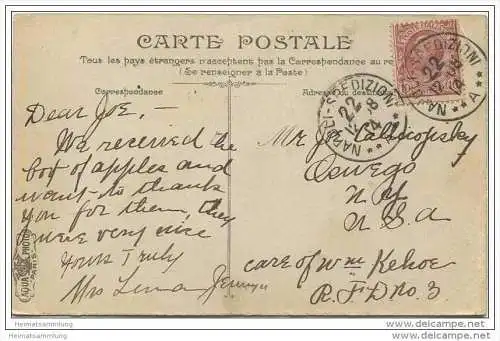 CARTE POSTALE
Tous les pays étrangers n'acceptent pas la Correspondance au re
(Se renseigner à la Poste)
Correspondance
Adresse du destin
Dear Joe,-
We received the
box of apples and
want to thank
you for them, they
were very nice
Yours Truly
Mrs Lena
Mr Joe
Oswego
N.Y.
U.S.A
care of Wm Kehoe
R.F.D No. 3
NAPOLI-SPEDIZIONI
22
12-8
A
NAPOLI-SPEDIZIONI
22
12-8
A
AQUA PHOTO
PARIS
Heimatsammlung
Heimatsammlung.de